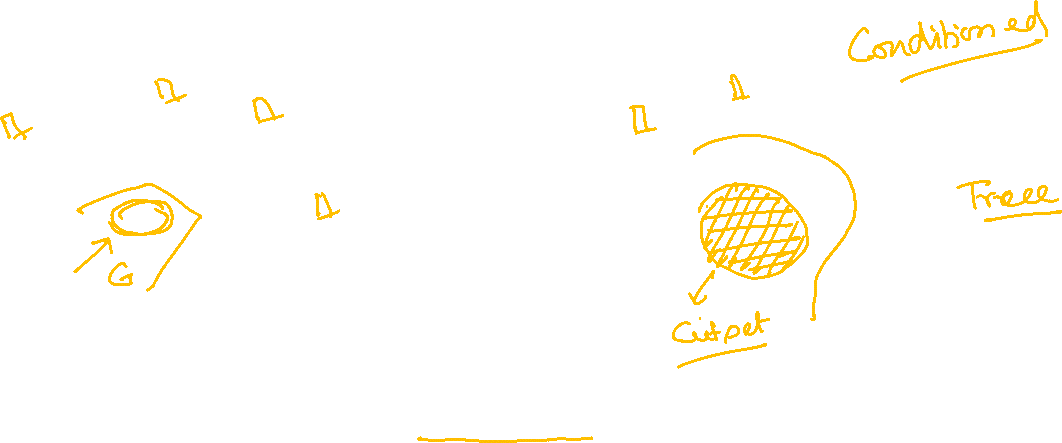 Conditioned
Treee
G
Cutset